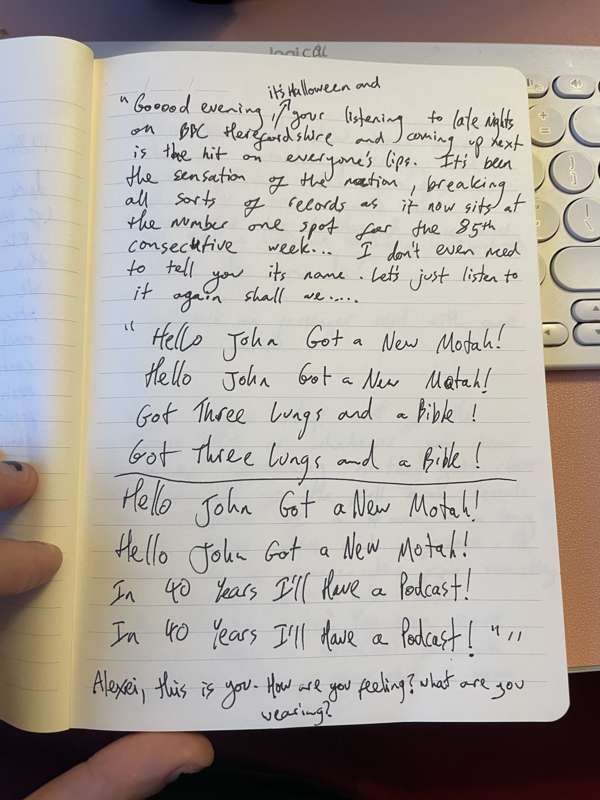 logical
it's Halloween and
"Gooood evening, your listening to late nights
on BBC Herefordshire and coming up next
is the hit on everyone's lips. It's been
the sensation of the nation, breaking
all sorts of records as it now sits at
the number one spot for the 85th
consecutive week... I don't even need
to tell you its name. Let's just listen to
it again shall we.....
"Hello John Got a New Motah!
Hello John Got a New Motah!
Got Three Lungs and a Bible!
Got Three Lungs and a Bible!
Hello John Got a New Motah!
Hello John Got a New Motah!
In 40 Years I'll Have a Podcast!
In 40 Years I'll Have a Podcast! ""
Alexei, this is you. How are you feeling? what are you
wearing?